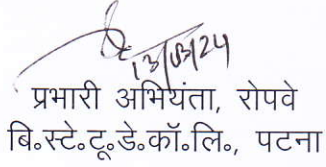 13/03/24
प्रभारी अभियंता, रोपवे
बि०स्टे०टू०डे०कॉ०लि०, पटना